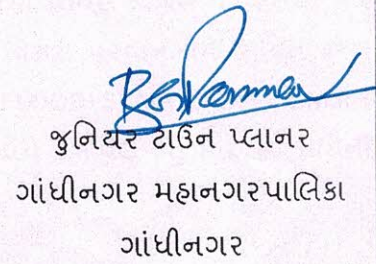 જુનિયર ટાઉન પ્લાનર
ગાંધીનગર મહાનગરપાલિકા
ગાંધીનગર